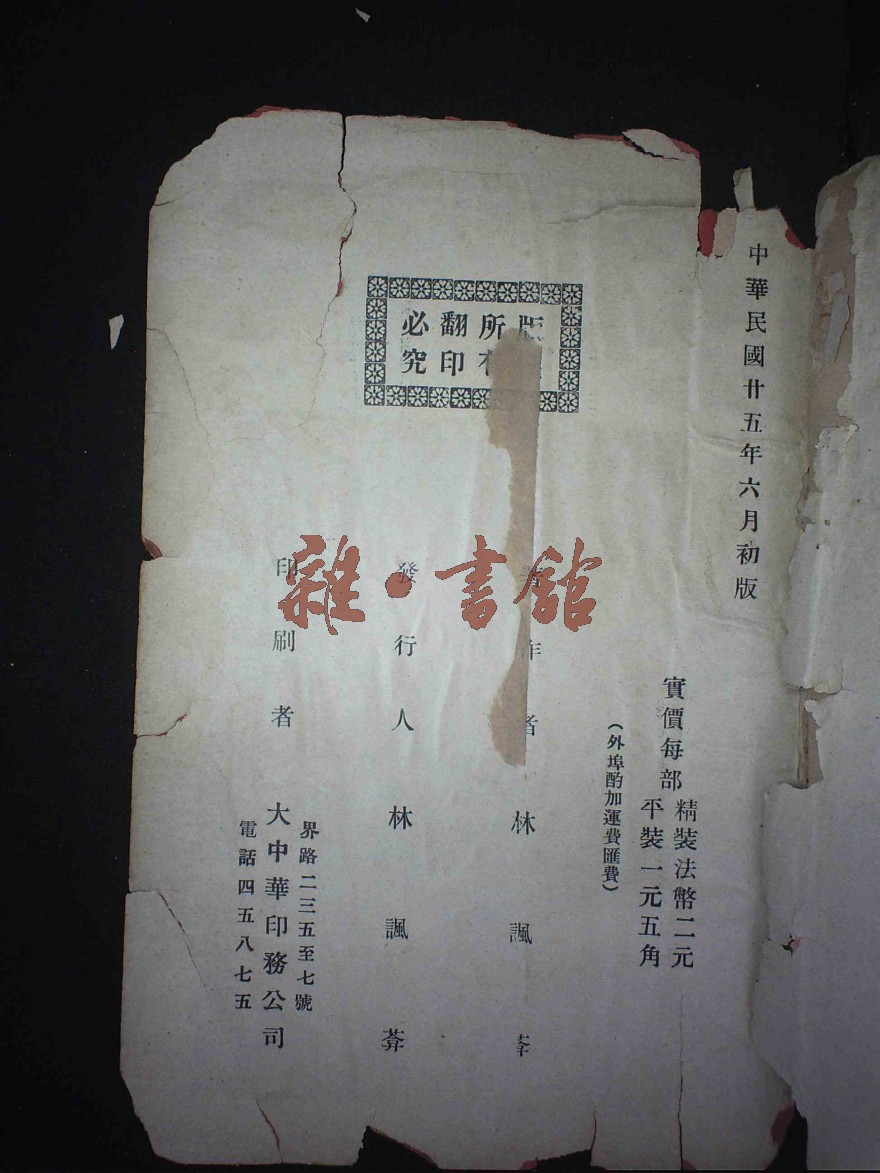 中華民國廿五年六月初版
實價每部
精裝法幣二元
平裝一元五角
(外埠酌加運費匯費)
版所翻必
印究
作者林諷
發行人林諷葊
印刷者大中華印務公司
界路二三五至七號
電話四五八七五
雜·書館